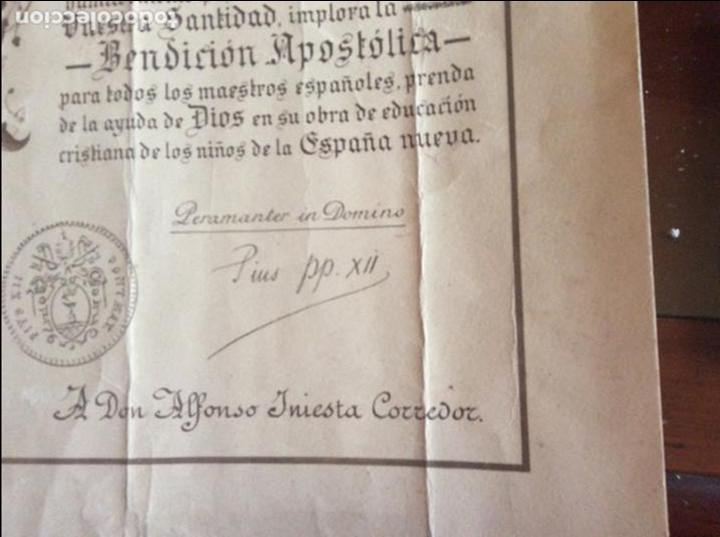 todocoleccion
Vuestra Santidad, implora la
—Bendición Apostólica—
para todos los maestros españoles, prenda
de la ayuda de Dios en su obra de educación
cristiana de los niños de la España nueva.
Peramanter in Domino
Pius pp. XII
PIVS XII PONT MAX
A Don Alfonso Iniesta Corredor.